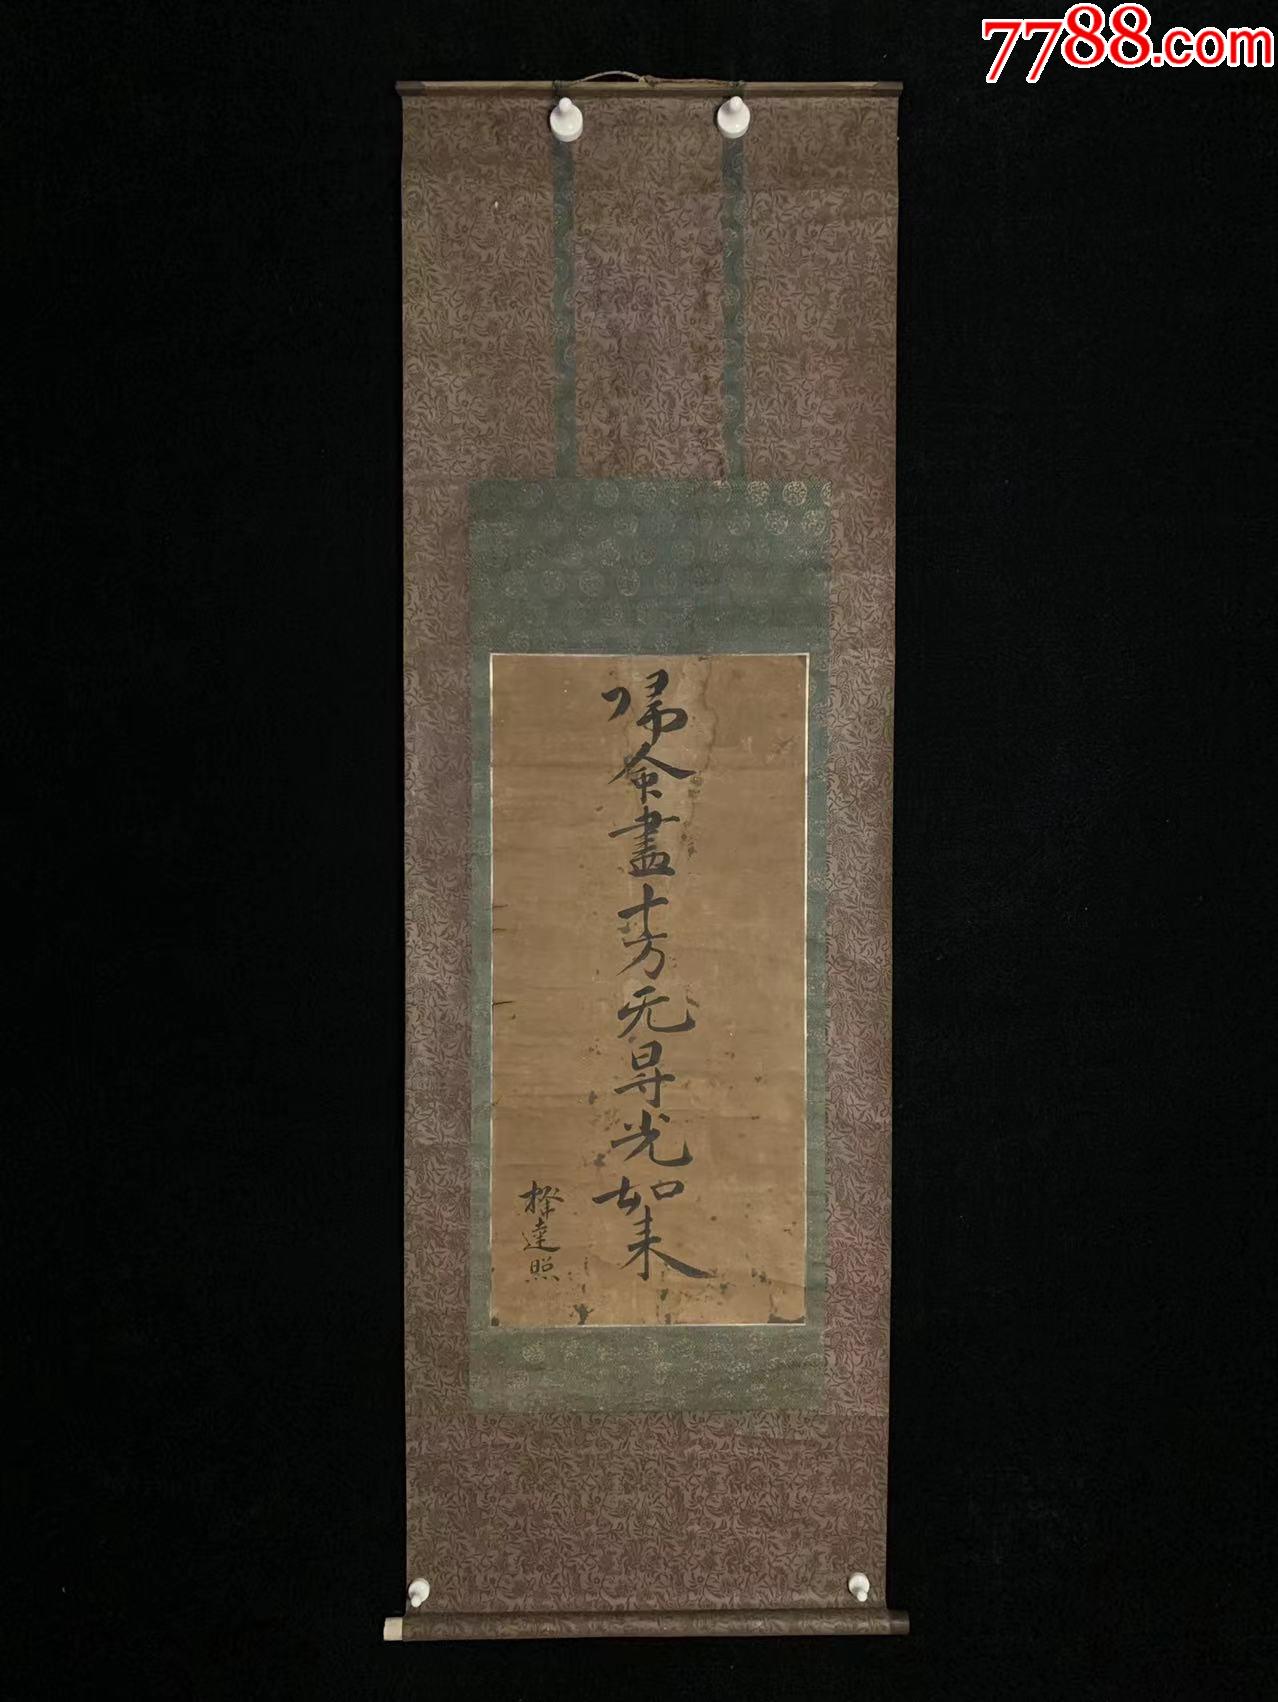 7788.com
帰命盡十方无㝵光如来
釋達照